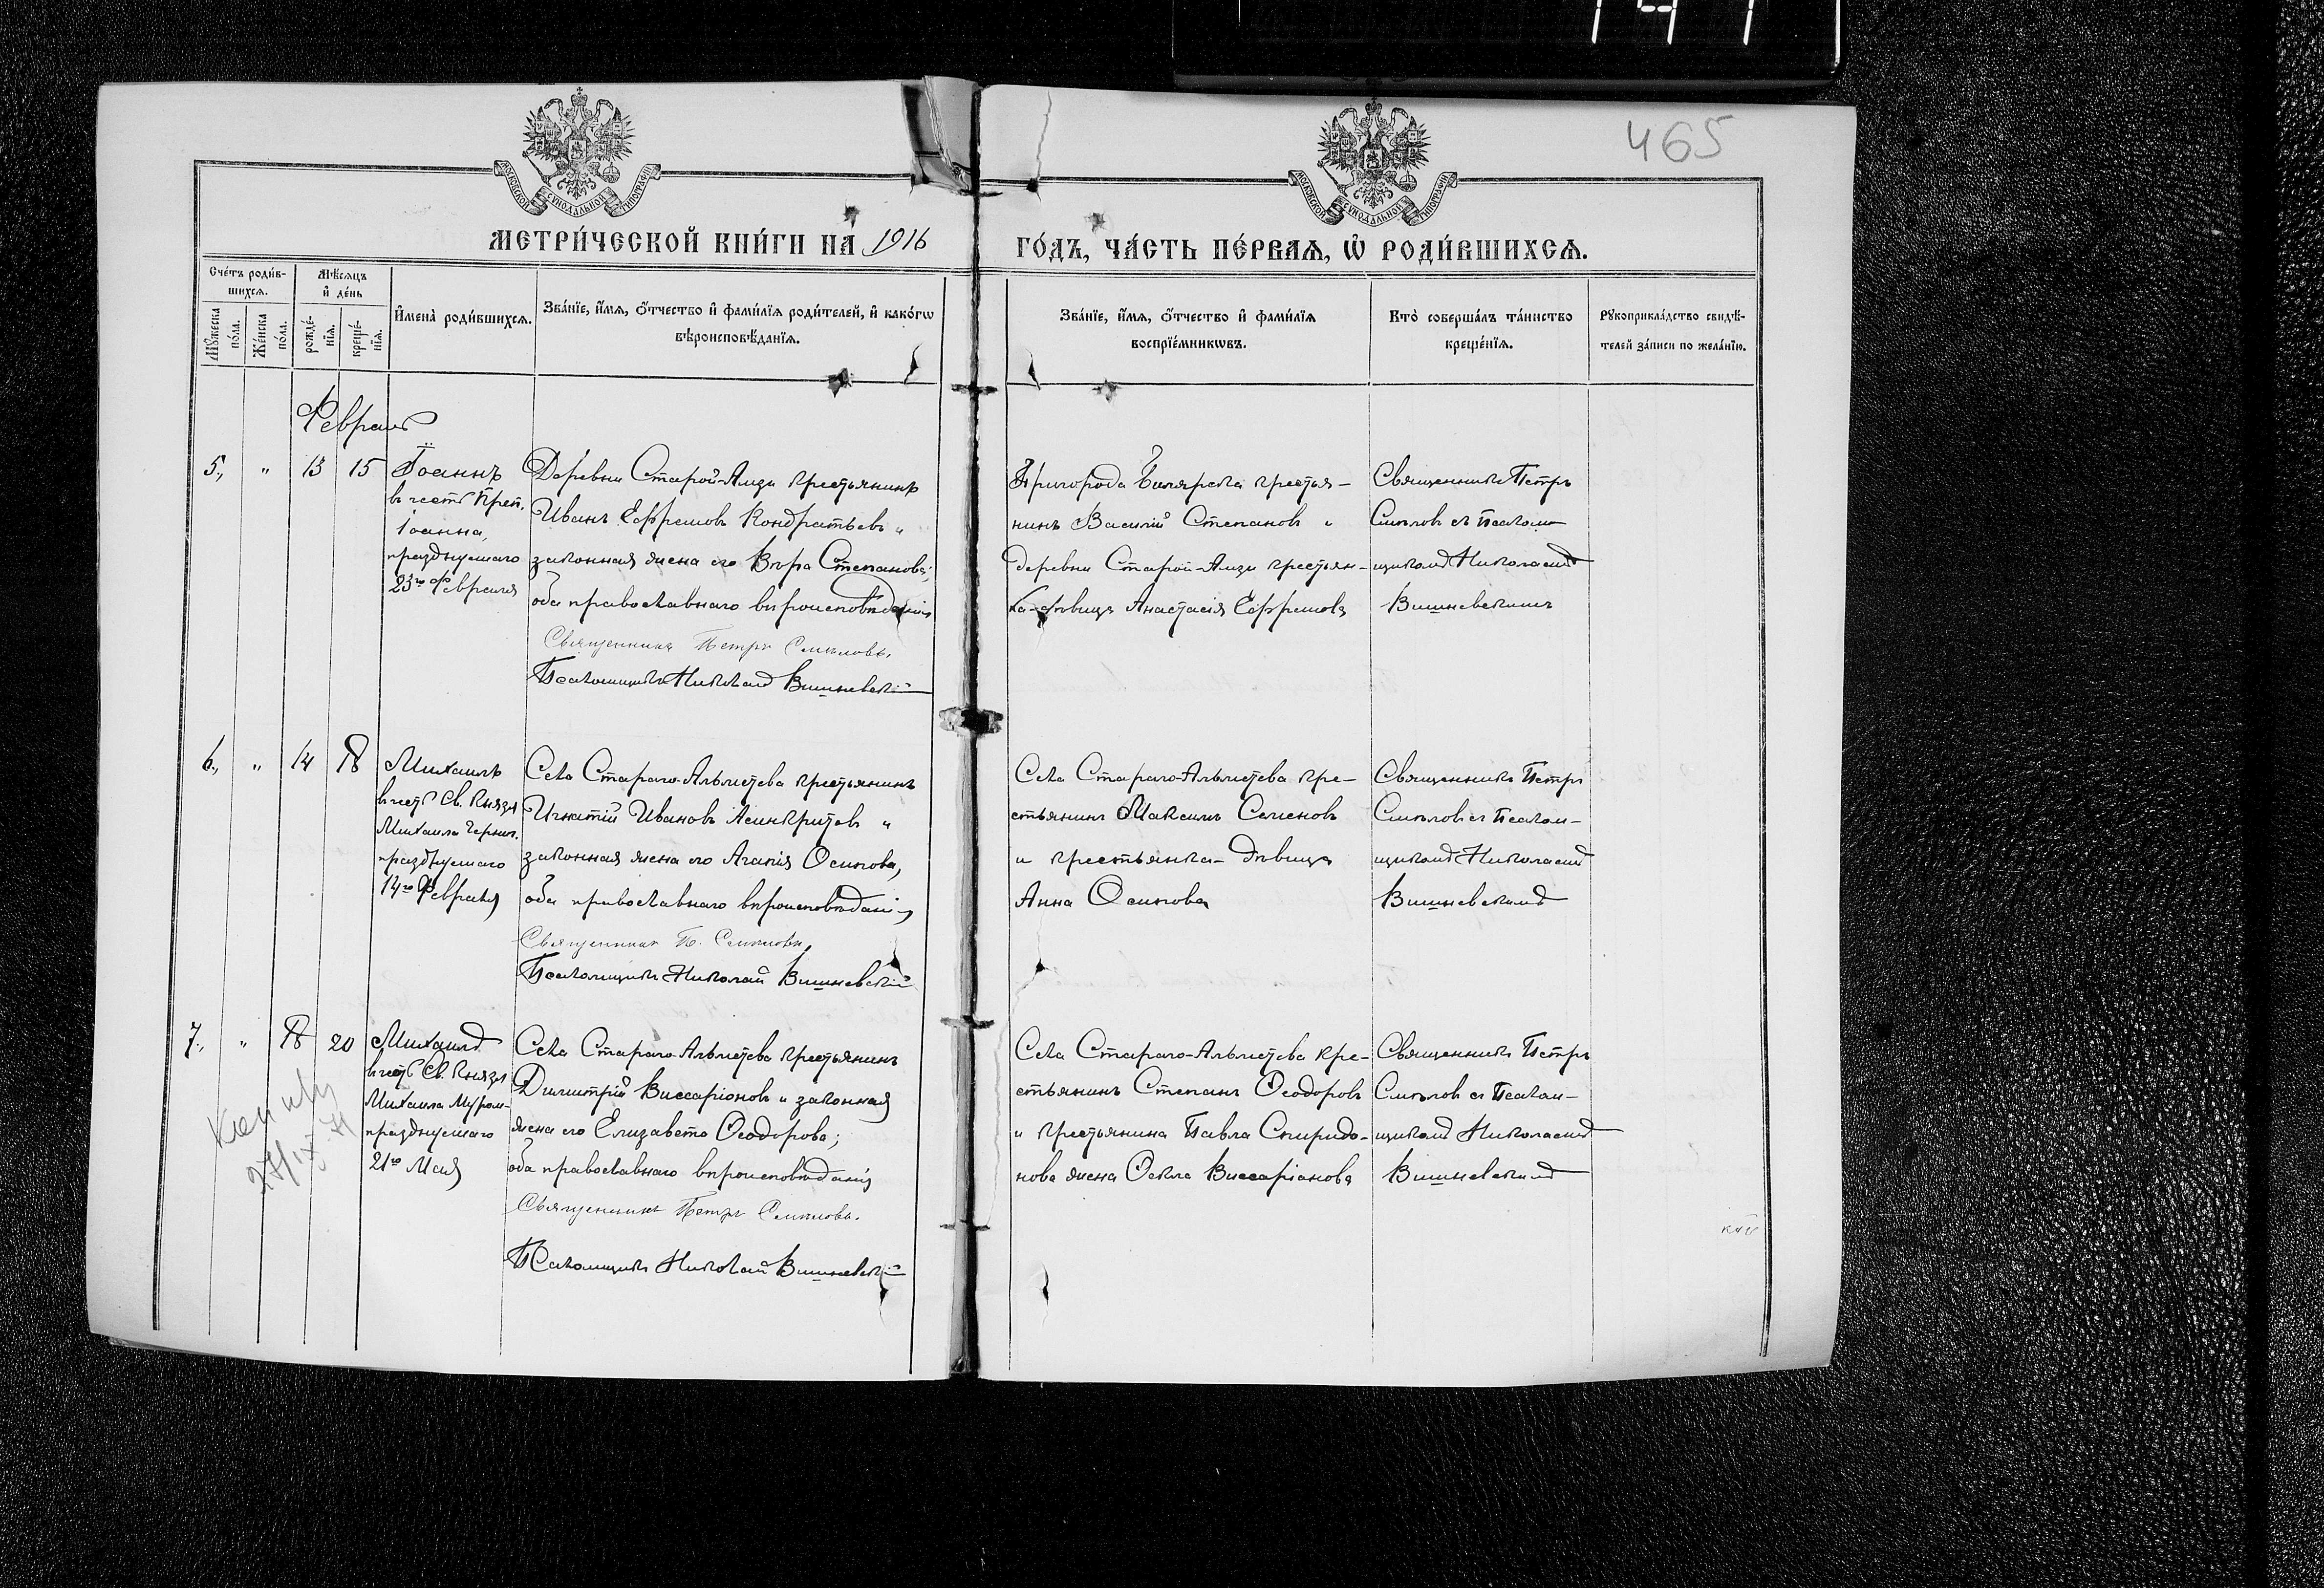 147
465
МОСКОВСКОЙ СѴНОДАЛЬНОЙ ТИПОГРАФІИ
МОСКОВСКОЙ СѴНОДАЛЬНОЙ ТИПОГРАФІИ
МЕТРИ́ЧЕСКОЙ КНИ́ГИ НА 1916
ГО́ДЪ, ЧА́СТЬ ПЕ́РВАЯ, Ѡ РОДИ́ВШИХСЯ.
Сче́тъ роди́в-
шихся.
Мѣ́сяцъ
и де́нь
Мꙋ́жеска
по́ла.
Же́нска
по́ла.
рожде́-
нїя.
креще́-
нїя.
Имена̀ роди́вшихся.
Зва́нїе, и́мя, ѻ́тчество и фами́лїя роди́телей, и како́гѡ
вѣроисповѣ́данїя.
Зва́нїе, и́мя, ѻ́тчество и фами́лїя
воспрїе́мникѡвъ.
Кто̀ соверша́лъ та́инство
креще́нїя.
Рꙋкоприкла́дство свидѣ́-
телей за́писи по жела́нїю.
Февраль
5., " 13 15 Іоаннъ
въ честь Преп.
Іоанна,
празднуемаго
23го Февраля
Деревни Старой-Амзи крестьянинъ
Иванъ Ефремовъ Кондратьевъ и
законная жена его Вѣра Степанова;
оба православнаго вѣроисповѣданія
Священникъ Петръ Смѣловъ.
Псаломщикъ Николай Вишневскій
Пригорода Билярска крестья-
нинъ Василій Степановъ и
деревни Старой-Амзи крестьян-
ка-дѣвица Анастасія Ефремова
Священникъ Петръ
Смѣловъ съ Псалом-
щикомъ Николаемъ
Вишневскимъ
6., " 14 18 Михаилъ
въ честь Св. Князя
Михаила Черниг.
празднуемаго
14го Февраля
Села Стараго-Альметева крестьянинъ
Игнатій Ивановъ Асинкритовъ и
законная жена его Агапія Осипова,
оба православнаго вѣроисповѣданія
Священникъ П. Смѣловъ
Псаломщикъ Николай Вишневскій
Села Стараго-Альметева кре-
стьянинъ Максимъ Семеновъ
и крестьянка-дѣвица
Анна Осипова
Священникъ Петръ
Смѣловъ съ Псалом-
щикомъ Николаемъ
Вишневскимъ
7., " 18 20 Михаилъ
въ честь Св. Князя
Михаила Муром.
празднуемаго
21го Мая
Села Стараго-Альметева крестьянинъ
Димитрій Виссаріоновъ и законная
жена его Елизавета Ѳеодорова;
оба православнаго вѣроисповѣданія
Священникъ Петръ Смѣловъ.
Псаломщикъ Николай Вишневскій
Села Стараго-Альметева кре-
стьянинъ Степанъ Ѳеодоровъ
и крестьянина Павла Спиридо-
нова жена Ѳекла Виссаріонова
Священникъ Петръ
Смѣловъ съ Псалом-
щикомъ Николаемъ
Вишневскимъ